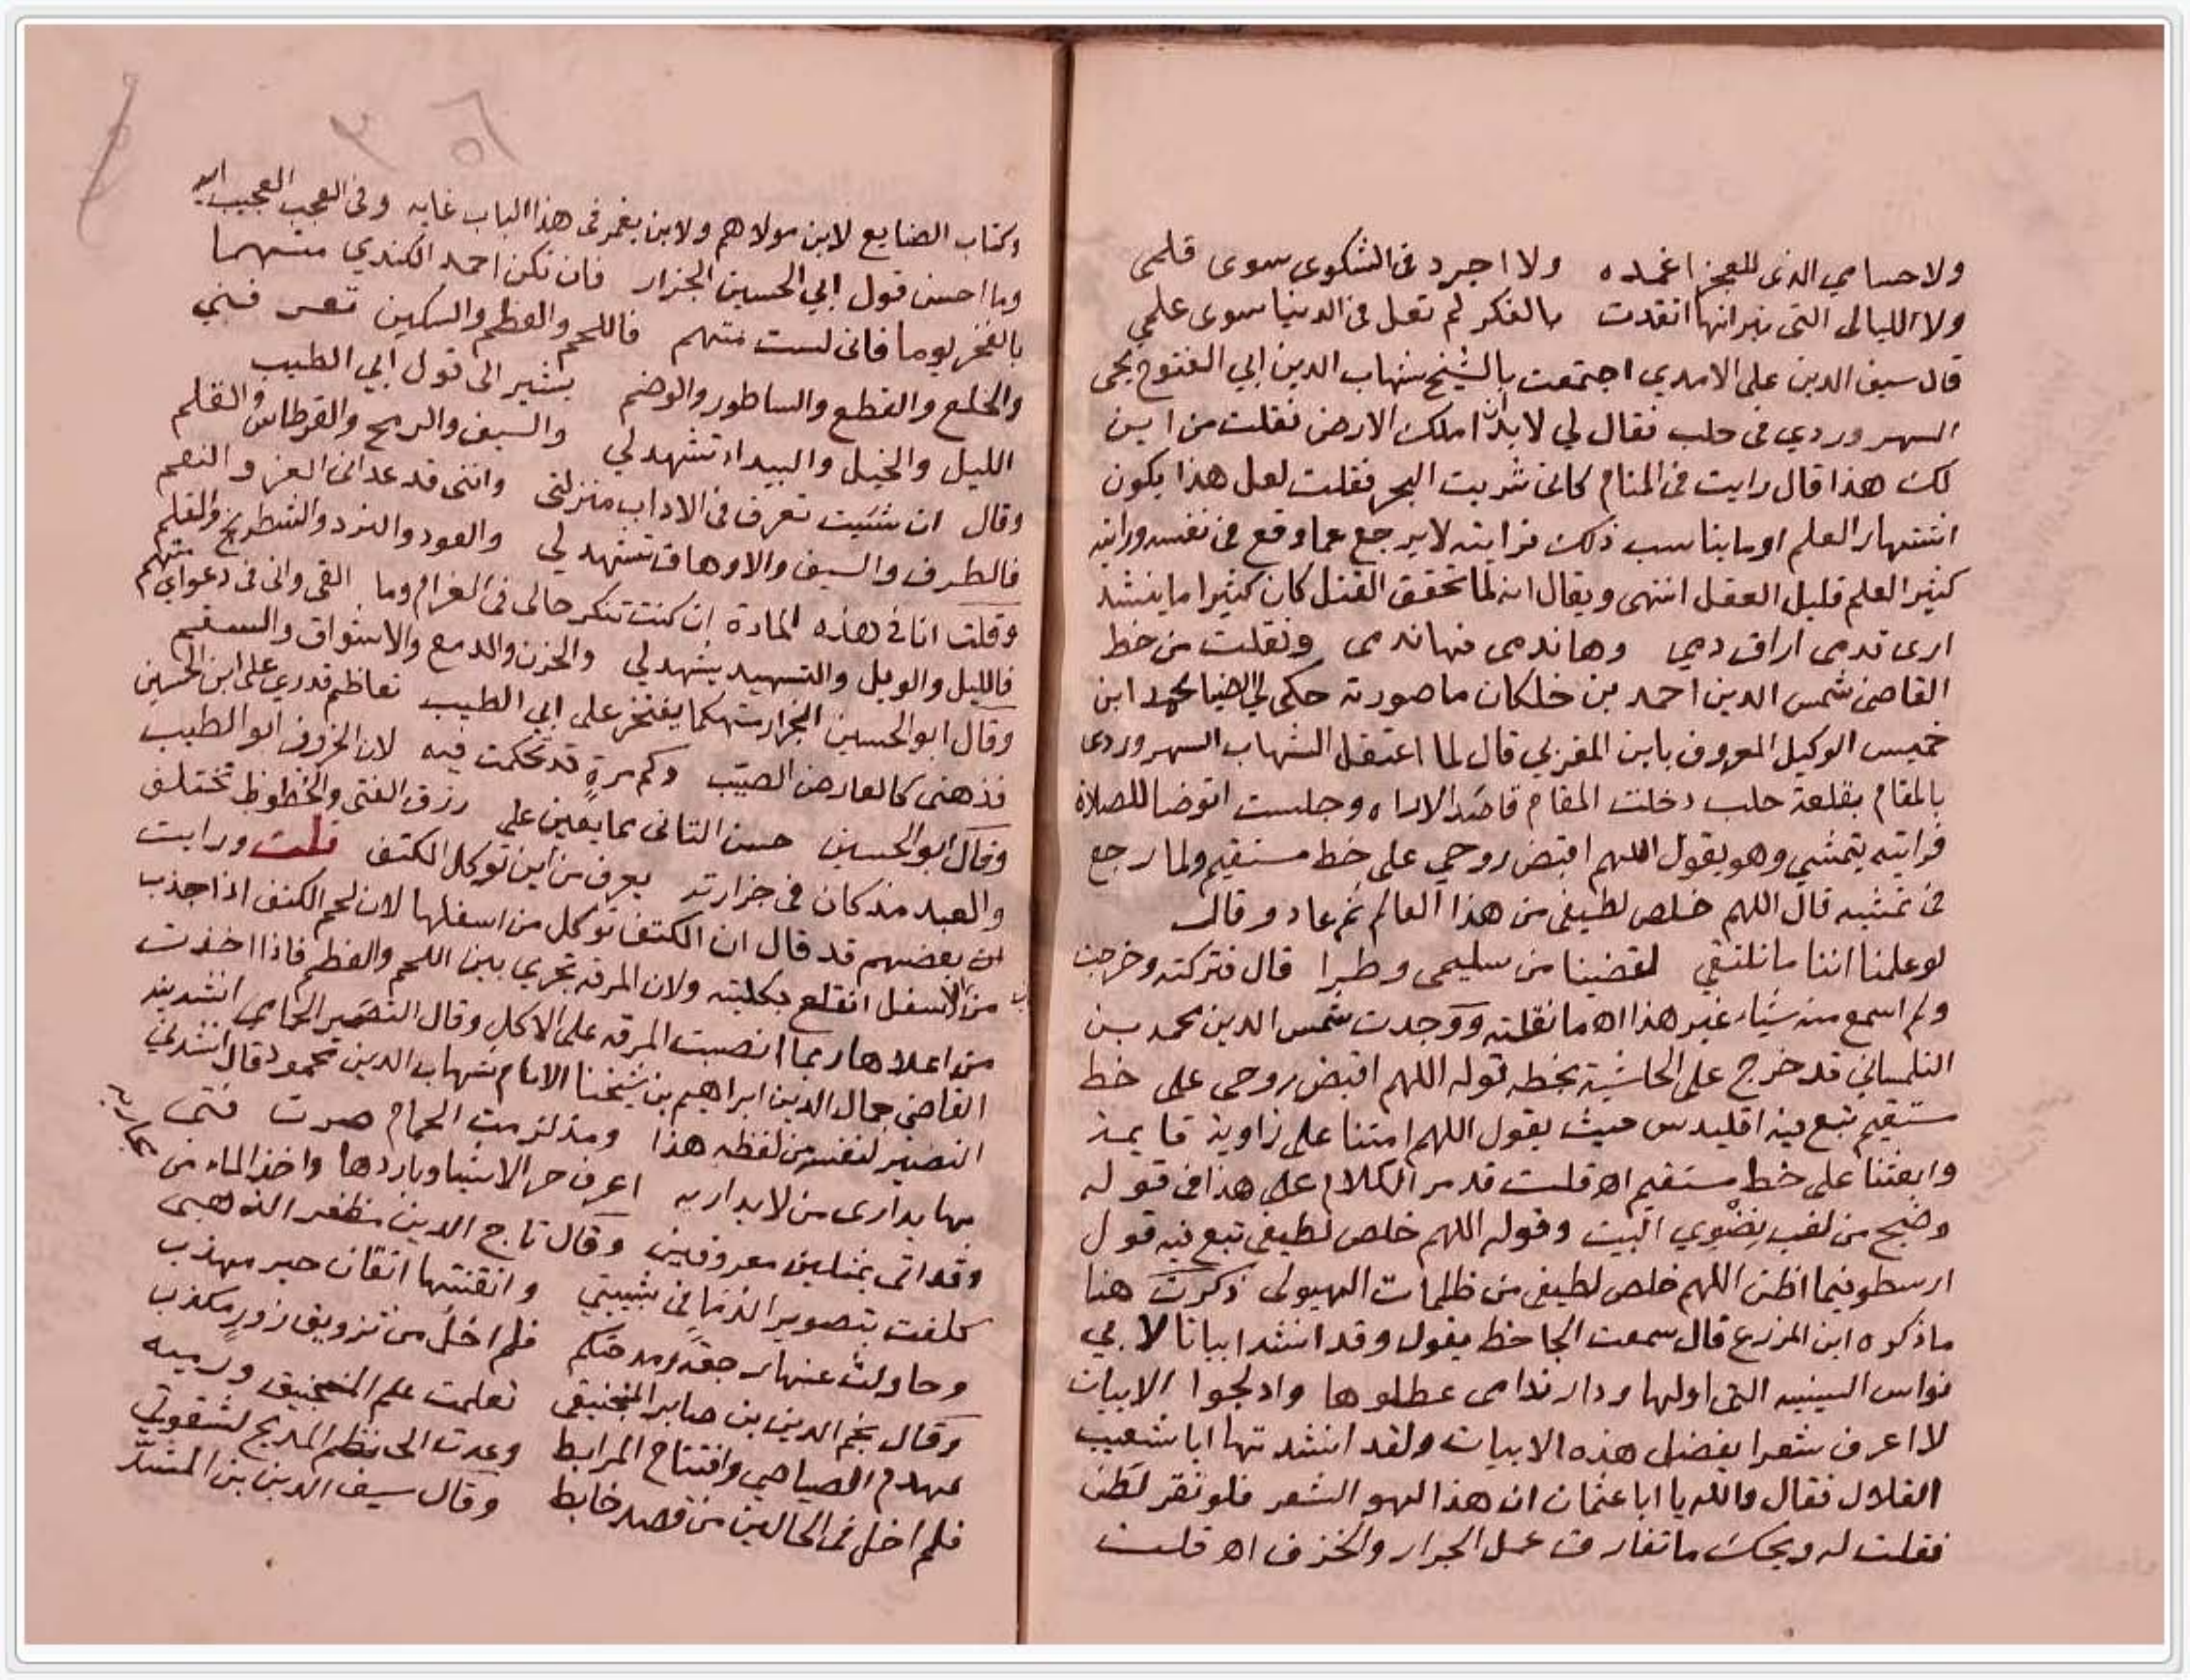 ولا حسامي الذي للعجز اغمده ولا اجرد في الشكوى سوى قلمي
ولا الليالي التي نيرانها اتقدت بالفكر لم تعل في الدنيا سوى علمي
قال سيف الدين علي الامدي اجتمعت بالشيخ شهاب الدين ابي الفتوح يحيى
السهروردي في حلب فقال لي لابد ان املك الارض فقلت من اين
لك هذا قال رايت في المنام كاني شربت البحر فقلت لعل هذا يكون
اشتهار العلم او ما يناسب ذلك فرايته لا يرجع عما وقع في نفسه ورايته
كثير العلم قليل العقل انتهى ويقال انه لما تحقق القتل كان كثيرا ما ينشد
ارى قدمي اراق دمي وهان دمي فها ندمي ونقلت من خط
القاضي شمس الدين احمد بن خلكان ما صورته حكى لي الضيا محمد ابن
خميس الوكيل المعروف بابن المغربي قال لما اعتقل الشهاب السهروردي
بالمقام بقلعة حلب دخلت المقام قاصد الاراه وجلست اتوضا للصلاة
فرايته يتمشي وهو يقول اللهم اقبض روحي على خط مستقيم ولما رجع
في تمشيه قال اللهم خلص لطيفي من هذا العالم ثم عاد وقال
لو علمنا اننا ما نلتقي لقضينا من سليمى وطرا قال فتركته وخرجت
ولم اسمع منه شيا غير هذا اه ما نقلته ووجدت شمس الدين محمد بن
التلمساني قد خرج على الحاشية بخطه قوله اللهم اقبض روحي على خط
مستقيم تبع فيه اقليدس حيث يقول اللهم امتنا على زاوية قايمة
وابعثنا على خط مستقيم اه قلت قد مر الكلام على هذا في قوله
وضج من لغب نضوي البيت وقوله اللهم خلص لطيفي تبع فيه قول
ارسطو فيما اظن اللهم خلص لطيفي من ظلمات الهيولى ذكرت هنا
ما ذكره ابن المزرع قال سمعت الجاحظ يقول وقد انشد ابياتا لابي
نواس السينيه التي اولها ودار ندامى عطلوها وادلجوا الابيات
لا اعرف شعرا يفضل هذه الابيات ولقد انشدتها ابا شعيب
القلال فقال والله يا ابا عثمان ان هذا لهو الشعر فلو نقر لطن
فقلت له ويحك ما تفارق عمل الجرار والخزف اه قلت
وكتاب الصنايع لابن مولاهم ولابن يغمر في هذا الباب غايه وفي العجب العجيب
وما احسن قول ابي الحسين الجزار فان تكن احمد الكندي متهما
بالفخر يوما فاني لست متهم فاللحم والعظم والسكين تعرفني
والخلع والقطع والساطور والوضم يشير الى قول ابي الطيب
الليل والخيل والبيداء تشهد لي والسيف والرمح والقرطاس والقلم
وقال ان شئت تعرف في الاداب منزلتي وانني قد عداني العز والنعم
فالطرف والسيف والاوهاق تشهد لي والعود والنرد والشطرنج والقلم
وقلت انا في هذه المادة ان كنت تنكر حالي في الغرام وما القى واني في دعواي متهم
فالليل والويل والتسهيد يشهد لي والحزن والدمع والاشواق والسقم
وقال ابو الحسين الجزار متهكما يفتخر على ابي الطيب تعاظم قدري على ابن الحسين
فذهني كالعارض الصيب وكم مرة قد تحكمت فيه لان الخروف ابو الطيب
وقال ابو الحسين حسن التاني مما يعين على رزق الفتى والحظوظ تختلف
والعبد مذ كان في جزارته يعرف من اين توكل الكتف قلت ورايت
ان بعضهم قد قال ان الكتف توكل من اسفلها لان لحم الكتف اذا جذب
من الاسفل انقلع بكليته ولان المرقه تجري بين اللحم والعظم فاذا اخذت
من اعلاها ربما انصبت المرقه على الاكل وقال النصير الحمامي انشدنيه
القاضي جمال الدين ابراهيم بن شيخنا الامام شهاب الدين محمود قال انشدني
النصير لنفسه من لفظه هذا ومذ لزمت الحمام صرت فتى
بها يداري من لا يداريه اعرف حر الاشيا وباردها واخذ الماء من
مجاريه
وقد اتى بمثلين معروفين وقال تاج الدين مظفر الذهبي
كلفت بتصوير الدنا في شبيبتي واتقنتها اتقان حبر مهذب
وحاولت عنها رجعة ومدحتكم فلم اخل من تزويق زور مكذب
وقال نجم الدين بن صابر المنجنيقي تعلمت علم المنجنيق ورميه
لهدم الصياصي وافتتاح المرابط وعدت الى نظم المديح لشقوتي
فلم اخل في الحالين من قصد حايط وقال سيف الدين بن المشد